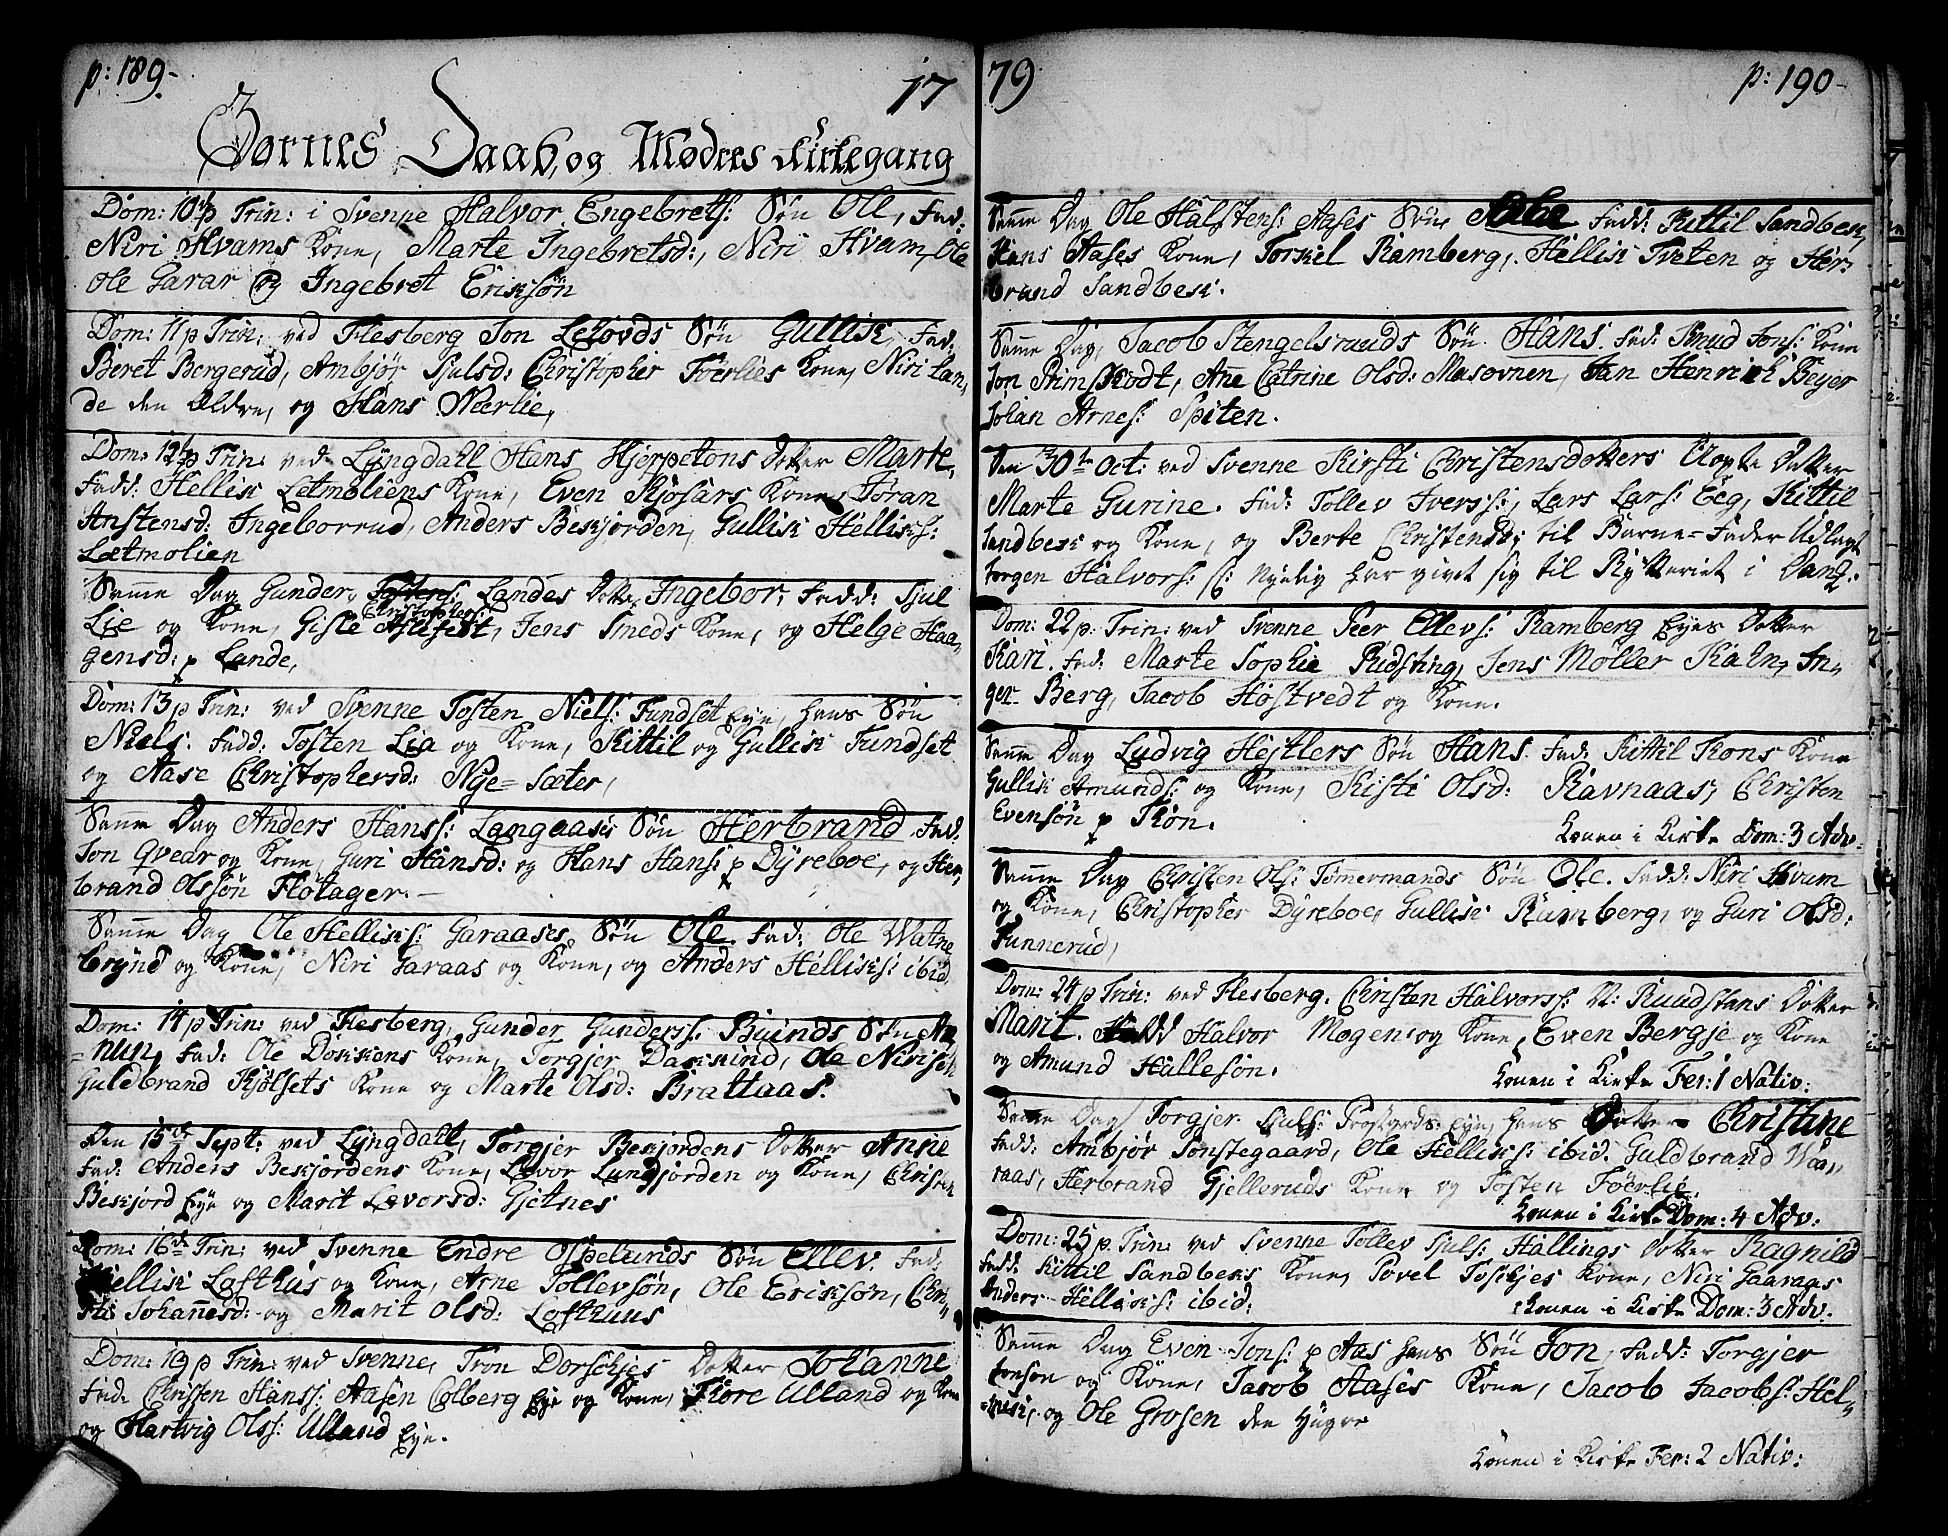 p: 189.
17
Børnes Daab, og Mødres Kirkegang
Dom: 10 p Trin: i Svenne Halvor Engebrets: Søn Ole, Fad:
Niri Hvams Kone, Marte Ingebretsd:, Niri Hvam, Ole
Ole Garar og Ingebret Erikssøn
Dom: 11 p Trin: ved Flesberg Jon Lelovds Søn Gullik, Fad:
Beret Bergerud, Ambjør Sjulsd: Christopher Foerlies Kone, Niri Lan,
de den Ældre, og Hans Næerlie,
Dom: 12 p Trin: ved Lyngdall Hans Hjerpetons Dotter Marte,
Fadd: Hellik Letmoliens Kone, Even Kjosårs Kone, Jøran
Anstensd: Ingeborrud, Anders Beskjorden, Gullik Helliks:
Lætmolien
Samme Dag Gunder Landes Dotter Ingebor, Fadd: Sjul
Christophers:
Lie og Kone, Gisle Jens Smeds Kone, og Helge Haa,
gensd: p Lande,
Dom: 13 p Trin: ved Svenne Tosten Niels: Fundset Eye, hans Søn
Niels. Fadd: Tosten Lia og Kone, Kittil og Gullik Fundset
og Aase Christophersd: Nye=Sæter,
Samme Dag Anders Hanss: Langaases Søn Herbrand, Fad:
Jon Qvear og Kone, Guri Hansd: og Hans Hans: p Dyreboe, og Her,
brand Olssøn Flotager.—
Samme Dag Ole Helliks: Garaases Søn Ole. Fad: Ole Watne
brynd og Kone, Niri Garaas og Kone, og Anders Helliks: ibid.
Dom: 14 p Trin: ved Flesberg, Gunder Gunderss: Buinds Søn Am,
=nun, Fad: Ole Døkkens Kone, Torgjer Daskind, Ole Nirisøn
Guldbrand Kjølsets Kone og Marte Olsd: Brattaas.
Den 15de Sept: ved Lyngdall, Torgjer Beskjordens Dotter Anne
Fad: Anders Beskjordens Kone, Levor Lundjorden og Kone,
Beskjord Eye og Marit Levorsd: Gjetnes
Dom: 16de Trin: ved Svenne Endre Ospelunds Søn Ellev. Fad:
Hellik Lofthus og Kone, Arne Tollevsøn, Ole Erikson, Chri,
sti Johannesd: og Marit Olsd: Lofthuus
Dom: 19 p Trin: ved Svenne, Tron Dorschjes Dotter Johanne
Fad: Christen Hanss: Aasen Colberg Eye og Kone, Tore Ulland og Kone
og Hartvig Olss: Ulland Eye.
79
p: 190-
Samme Dag Ole Halstens: Aases Søn Fadd: Kittil Sandbek,
Hans Aases Kone, Torkel Ramberg, Hellik Tveten og Her,
brand Sandbek.
Samme Dag, Jacob Stengelsruuds Søn Hans. Fad: Knud Jons: Kone
Jon Primskodt, Ane Catrine Olsd: Masovnen, Jan Henrich Beyer
Johan Arnes: Spiten.
Den 30te Oct: ved Svenne Kirsti Christensdotters Uægte Dotter
Marte Gurine. Fad: Tollev Ivers:, Lars Lars: Eeg, Kittil
Sandbek og Kone, og Berte Christensd: til Barne=Fader Udlagt
Jørgen Halvors: nyelig har givet sig til Rytteriet i Dan,:
Dom: 22 p. Trin: ved Svenne Peer Ellevs: Ramberg Eyes Dotter
Kari. Fad: Marte Sophie Rudsting, Jens Møller Kahn, In,
ger Berg, Jacob Hostvedt og Kone.
Samme Dag Ludvig Hejtlers Søn Hans. Fad: Kittil Kons Kone
Gullik Amunds: og Kone, Kisti Olsd: Ravnaas, Christen
Evensøn p Kon.
Konen i Kirke Dom: 3 Adv:
Samme Dag Christen Ols: Tømmermands Søn Ole. Fadd: Niri Hvam
og Kone, Christopher Dyreboe, Gullik Ramberg, og Guri Olsd:
Funnerud,
Dom: 24 p Trin: ved Flesberg. Christen Halvorss: N: Ruudstans Dotter
Marit. Fadd Halvor Mogens og Kone, Even Bergje og Kone
og Amund Hallesøn.
Konen i Kirke Fer: 1 Nativ:
Samme Dag Torgjer Sjuls: Eye, hans Dotter Christine
Fadd: Ambjør Tonstegaard, Ole Helliks: ibid. Guldbrand Waa,
raas, Herbrand Gjelleruds Kone og Tosten Føerlie.
Konen i Kirke Dom: 4 Adv:
Dom: 25 p. Trin: ved Svenne Tollev Sjuls: Hallings Dotter Ragnild
Fadd: Kittil Sandbeks Kone, Povel Toschjes Kone, Niri Gaaraas
Anders Helliks: ibid:
Konen i Kirke Dom: 3 Adv:
Samme Dag Even Jons: p Aas hans Søn Jon, Fadd: Torgjer
Jonson og Kone, Jacob Aases Kone, Jacob Jacobs: Hel,
og Ole Grosen den Yngre
Konen i Kirke Fer: 2 Nativ: